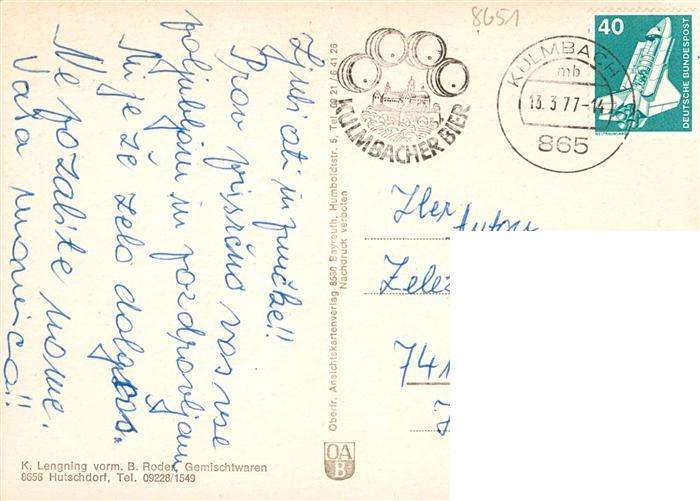 Ljubi ati in punčke!!
Prav prisrčno vas vse
poljubljam in pozdravljam
Mi je že zelo dolgčas.
Ne pozabite nome.
Vaša mamica!!
K. Lengning vorm. B. Roder, Gemischtwaren
8656 Hutschdorf, Tel. 09228/1549
Oberfr. Ansichtskartenverlag 8580 Bayreuth, Humboldtstr. 5, Tel. 09 21 / 6 41 26
Nachdruck verboten
OA
B
8651
KULMBACHER BIER
KULMBACH
mb
13.3.77-14
865
40
DEUTSCHE BUNDESPOST
Her
Anton
Želez
741